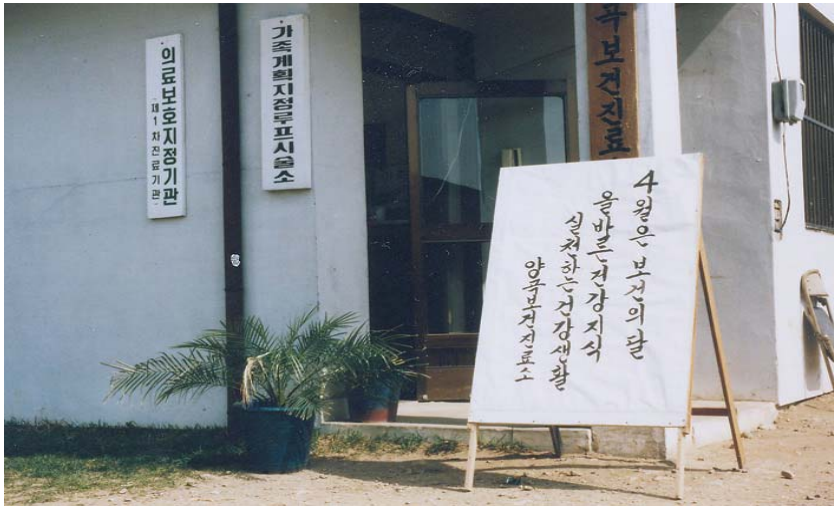 의료보호지정기관
제1차진료기관
가족계획지정루프시술소
곡보건진료
4월은 보건의 달
올바른 건강지식
실천하는 건강생활
양곡보건진료소